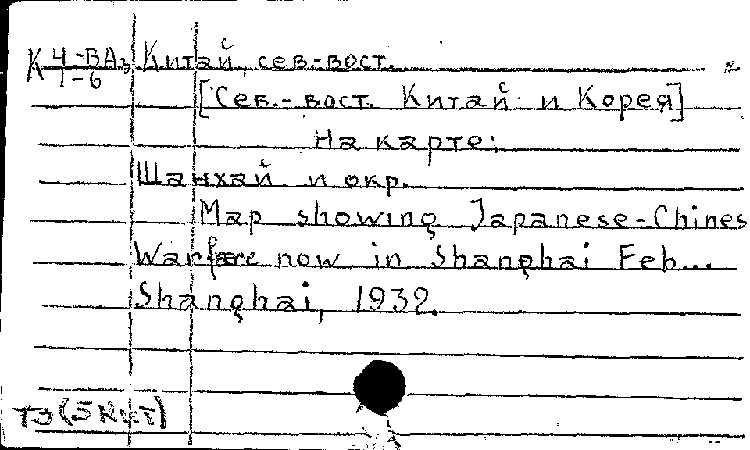 К 4-ВАз Китай, сев.-вост.
1-6
[Сев.-вост. Китай и Корея]
На карте:
Шанхай и окр.
Map showing Japanese-Chines
Warfare now in Shanghai Feb...
Shanghai, 1932.
ТЗ (5